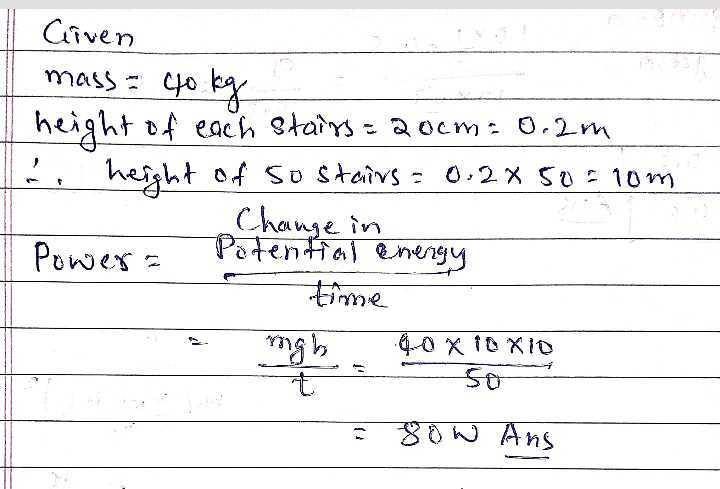 Given
mass = 40 kg
height of each stairs = 20cm = 0.2m
∴ height of 50 stairs = 0.2 × 50 = 10m
Power = Change in Potential energy
time
= mgh / t = 40 × 10 × 10 / 50
= 80W Ans